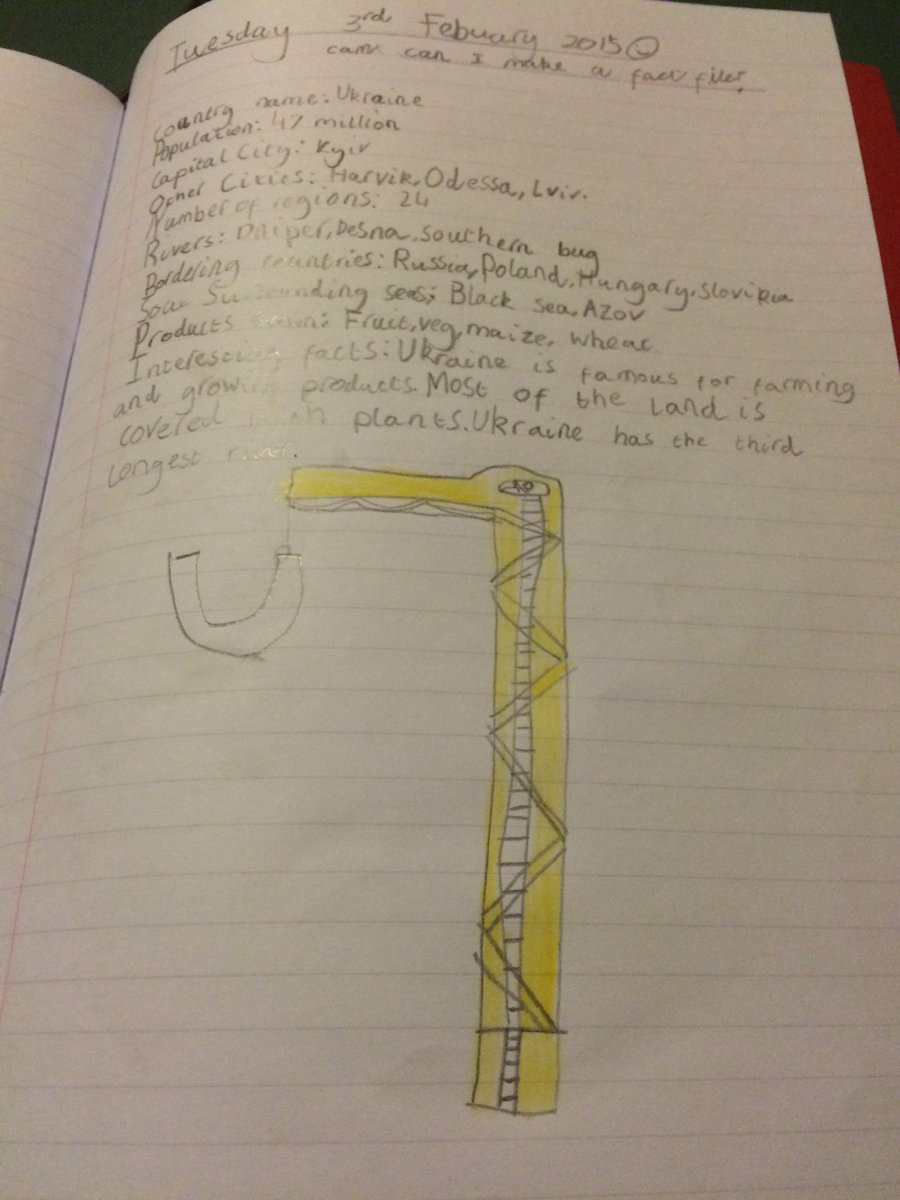 Tuesday 3rd Febuary 2015
can can I make a fact file?
Country name: Ukraine
Population: 47 million
Capital City: Kyiv
Other Cities: Harvik, Odessa, Lviv.
Number of regions: 24
Rivers: Dniper, Desna, Southern bug
Bordering countries: Russia, Poland, Hungary, Slovikia
Surrounding seas: Black sea, Azov
Products grown: Fruit, veg, maize, wheat
Interesting facts: Ukraine is famous for farming
and growing products. Most of the land is
covered with plants. Ukraine has the third
longest river.